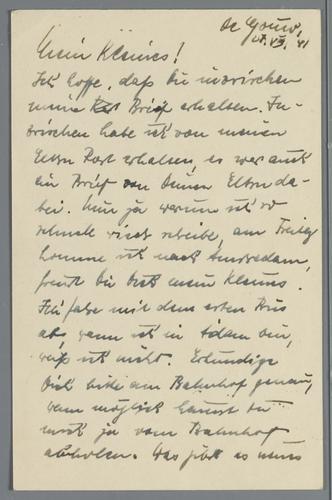 de Gouw,
17. VII. 41
Mein Kleines!
Ich hoffe, daß Du inzwischen
meine Brief erhalten. In-
zwischen habe ich von meinen
Eltern Post erhalten, es war auch
ein Brief von Deinen Eltern da-
bei. Nun ja warum ich so
schnell wieder schreibe, am Freitag
komme ich nach Amsterdam,
freust Du Dich mein Kleines.
Ich fahre mit dem ersten Bus
ab, wann ich in Adam bin,
weiß ich nicht. Erkundige
Dich bitte am Bahnhof genau,
wenn möglich kannst Du
mich ja vom Bahnhof
abholen. Was gibt es neues